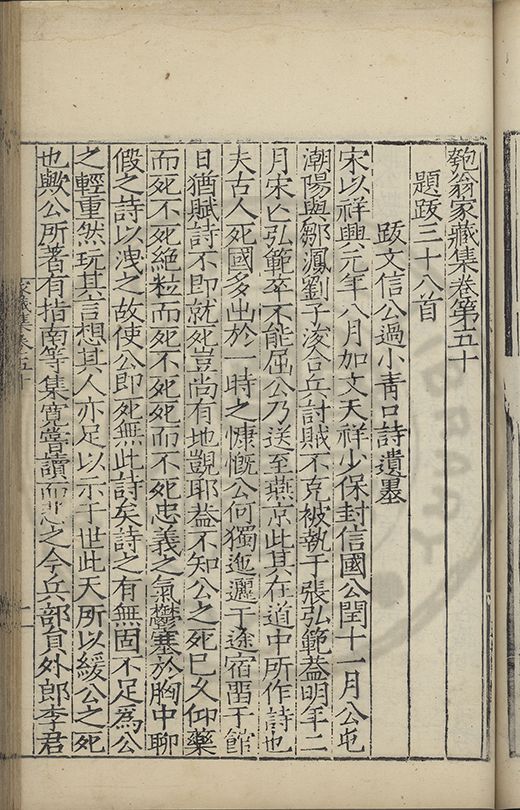 匏翁家藏集卷第五十
題跋三十八首
跋文信公過小青口詩遺墨
宋以祥興元年八月加文天祥少保封信國公閏十一月公屯
潮陽與鄒㵯劉子浚合兵討賊不克被執于張弘範蓋明年二
月宋亡弘範卒不能屈公乃送至燕京此其在道中所作詩也
夫古人死國多出於一時之慷慨公何獨迤邐于途宿留于館
日猶賦詩不即就死豈尚有地觀耶蓋不知公之死已久仰藥
而死不死絕粒而死不死死而不死忠義之氣鬱塞於胸中聊
假之詩以洩之故使公即死無此詩矣詩之有無固不足為公
之輕重然玩其言想其人亦足以示于世此天所以緩公之死
也歟公所著有指南等集寬嘗讀而悲之今兵部員外郎李君
家藏集卷五十